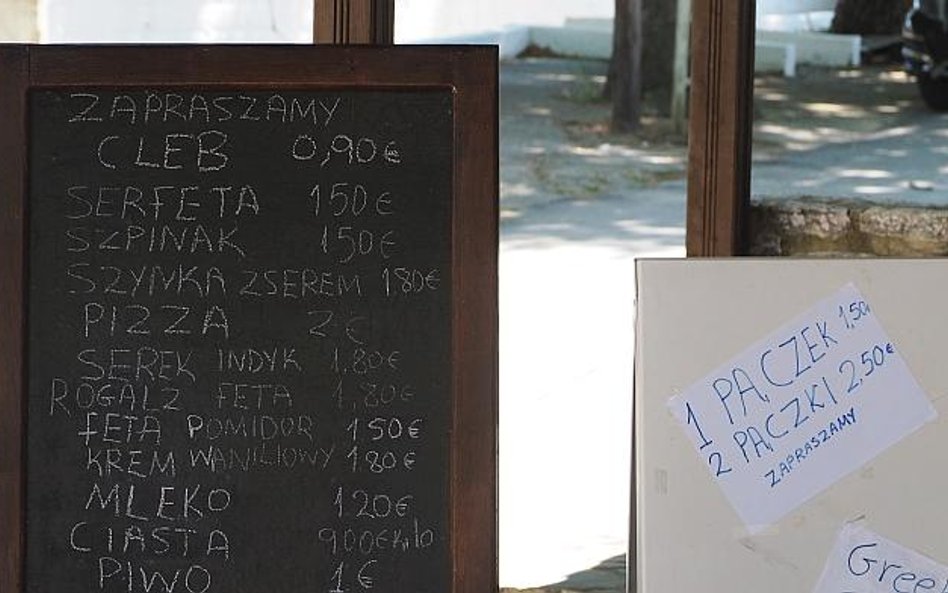 ZAPRASZAMY
CLEB 0,90€
SERFETA 150€
SZPINAK 150€
SZYNKA ZSEREM 1.80€
PIZZA 2€
SEREK INDYK 1.80€
ROGALZ FETA 1,80€
FETA POMIDOR 150€
KREM WANILIOWY 180€
MLEKO 120€
CIASTA 900€kilo
PIWO 1€
1 PĄCZEK 1,50
2 PĄCZKI 2,50€
ZAPRASZAMY